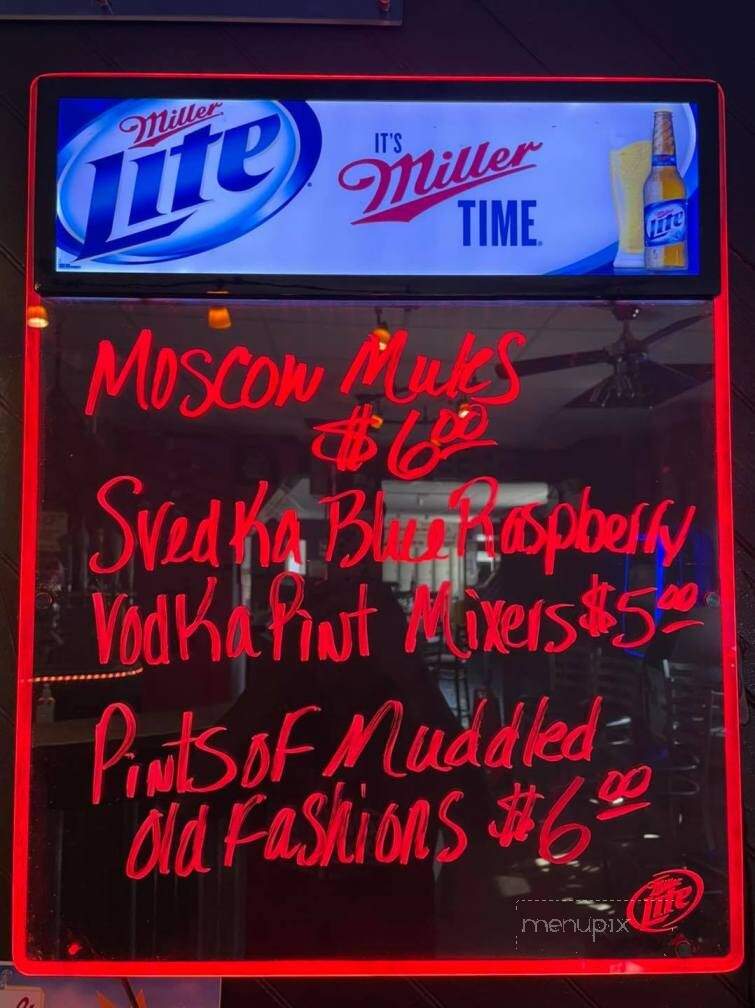 Miller
Lite
IT'S
Miller
TIME
Lite
Moscow Mules
$6.00
Svedka Blue Raspberry
Vodka Pint Mixers $5.00
Pints of Muddled
Old Fashions $6.00
Lite
menupix